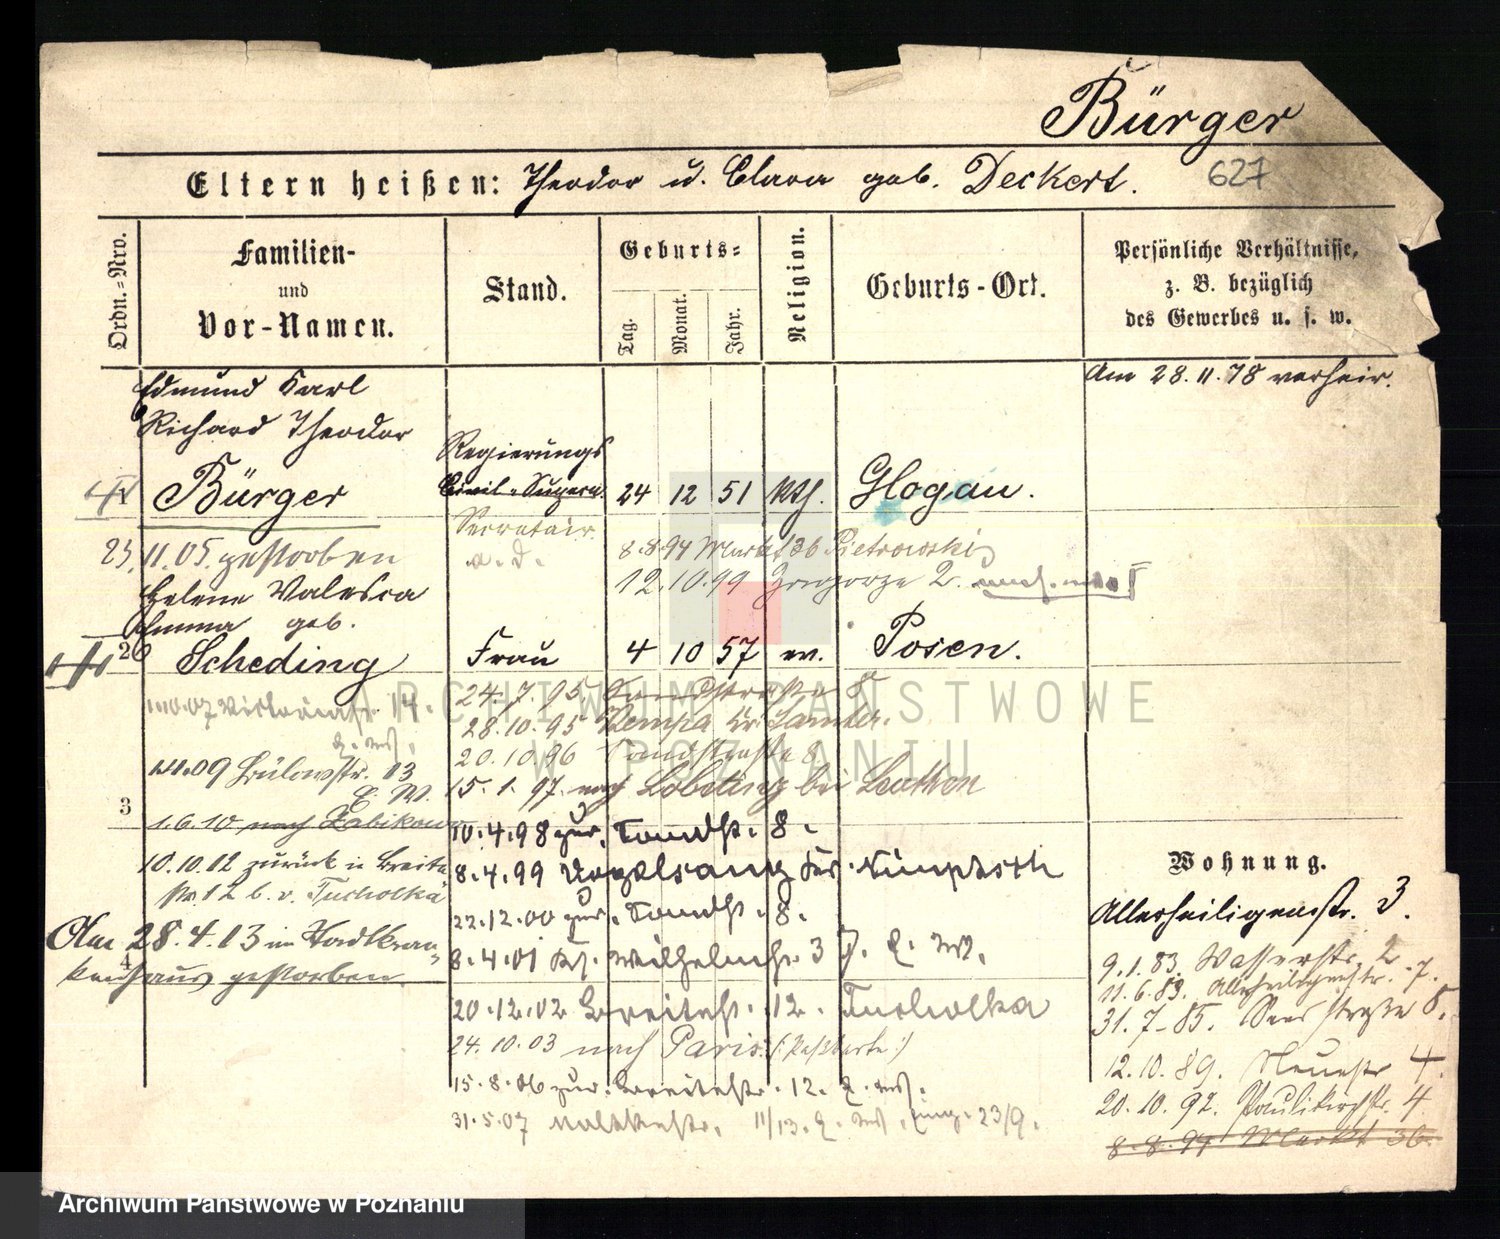 Bürger
Eltern heißen: Theodor u. Clara geb. Deckert.
627
Ordn.=Nro.
Familien-
und
Vor-Namen.
Stand.
Geburts=
Tag.
Monat.
Jahr.
Religion.
Geburts-Ort.
Persönliche Verhältnisse,
z. B. bezüglich
des Gewerbes u. s. w.
Am 28.11.78 verheir.
Edmund Karl
Richard Theodor
1 Bürger
Regierungs
Civil-Supern.
24 12 51 kth. Glogau.
Secretair
a. D.
8.8.94 Markt 36 Pietrowski
12.10.99 2.
23.11.05. gestorben
Helene Valesca
Emma geb.
2 Scheding
Frau 4 10 57 ev. Posen.
24.7.95. 8
28.10.95 Kempa Kr. Samter.
20.10.96 8
15.1.97. nach bei
10.4.98 zur. 8.
8.4.99 Vogelsang Kr. Nimptsch
22.12.00 zur. 8.
8.4.01 Wilhelmstr. 3
20.12.02 Breitestr. 12. Tucholka
24.10.03 nach Paris (:Paßkarte:)
15.8.06 zur. Breitestr. 12.
31.5.07 11/13. 23/9.
Victoriastr. 14.
09 Bülowstr. 13
E. W.
3
1.6.10 nach Zabikowo
10.10.12 zurück in Breite
str. 12 b. v. Tucholka
Am 28.4.13 im Stadtkran-
4
kenhaus gestorben.
Wohnung.
Allerheiligenstr. 3.
9.1.83. Wasserstr. 2
11.6.83. Allerheiligenstr. 7.
31.7.85. straße 8.
12.10.89. Neuestr 4.
20.10.92. Paulikirchstr. 4
8.8.94 Markt 36.
ARCHIWUM PAŃSTWOWE
W POZNANIU
Archiwum Państwowe w Poznaniu